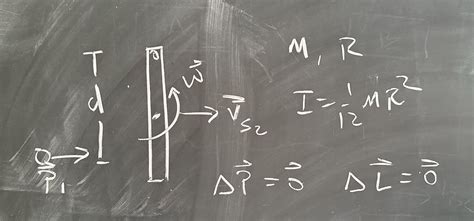 T
d
P⃗₁
ω⃗
V⃗s₂
M, R
I = 1/12 MR²
ΔP⃗ = 0⃗ ΔL⃗ = 0⃗